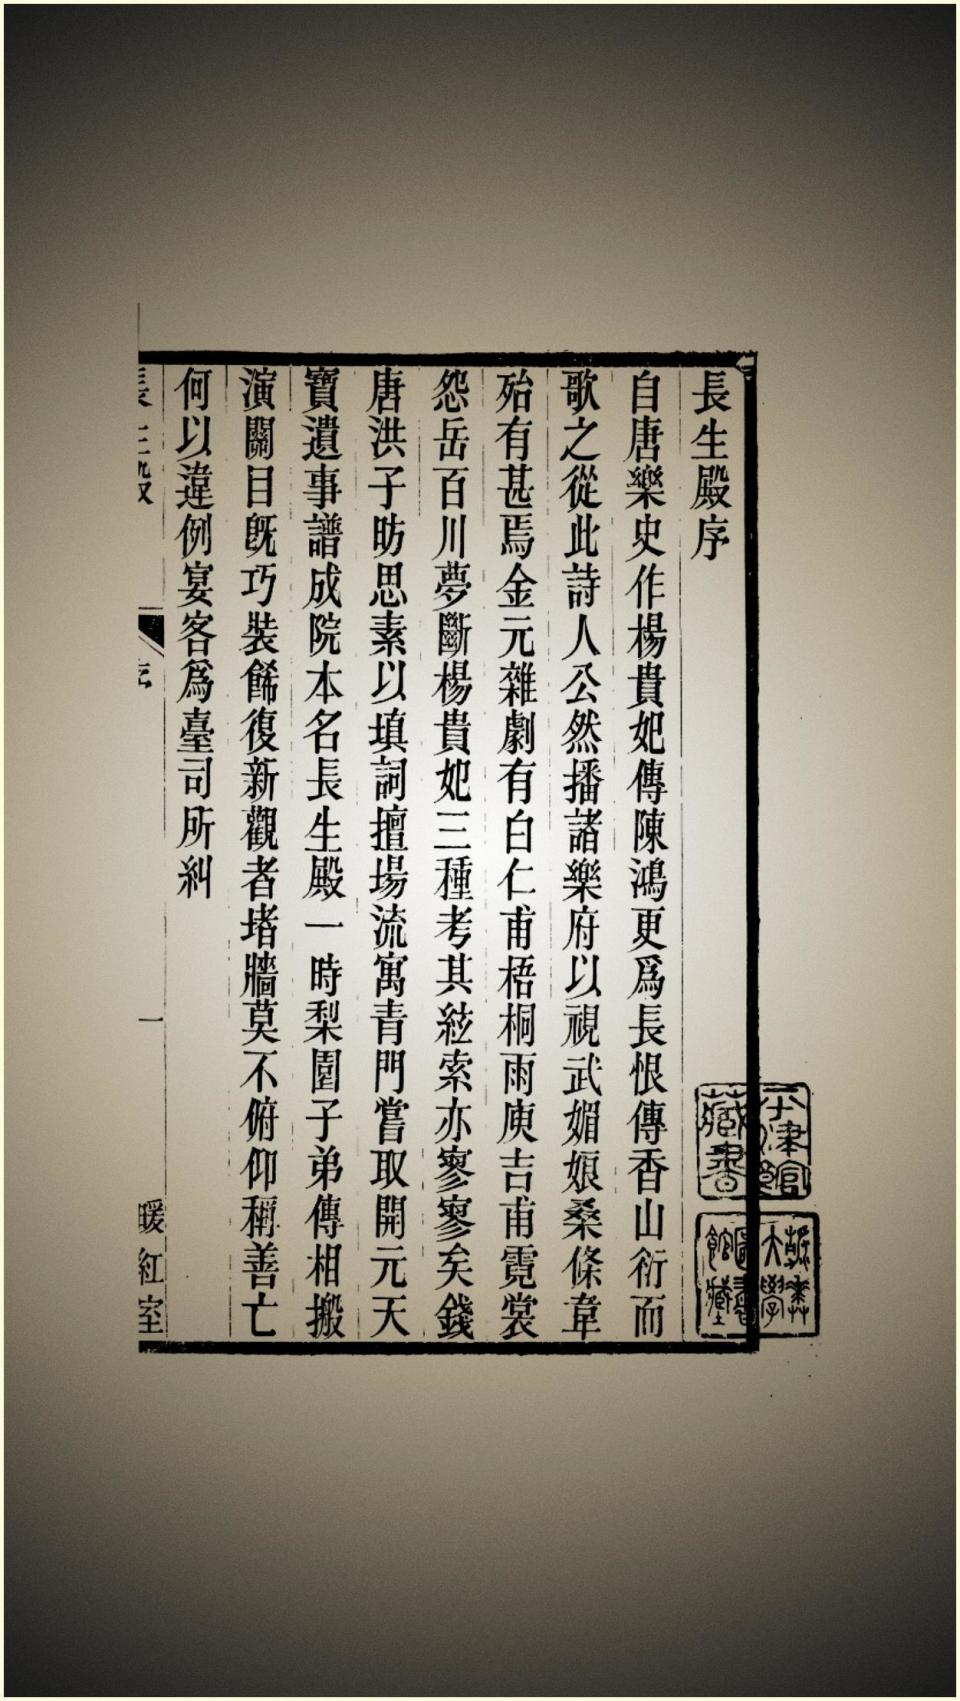 長生殿序
自唐樂史作楊貴妃傳陳鴻更爲長恨傳香山衍而
歌之從此詩人公然播諸樂府以視武媚娘桑條韋
殆有甚焉金元雜劇有白仁甫梧桐雨庾吉甫霓裳
怨岳百川夢斷楊貴妃三種考其絃索亦寥寥矣錢
唐洪子昉思素以填詞擅場流寓青門嘗取開元天
寶遺事譜成院本名長生殿一時梨園子弟傳相搬
演關目旣巧裝餙復新觀者堵牆莫不俯仰稱善亡
何以違例宴客爲臺司所糾
長生殿
序
一
暖紅室
藏書
大學圖書館藏